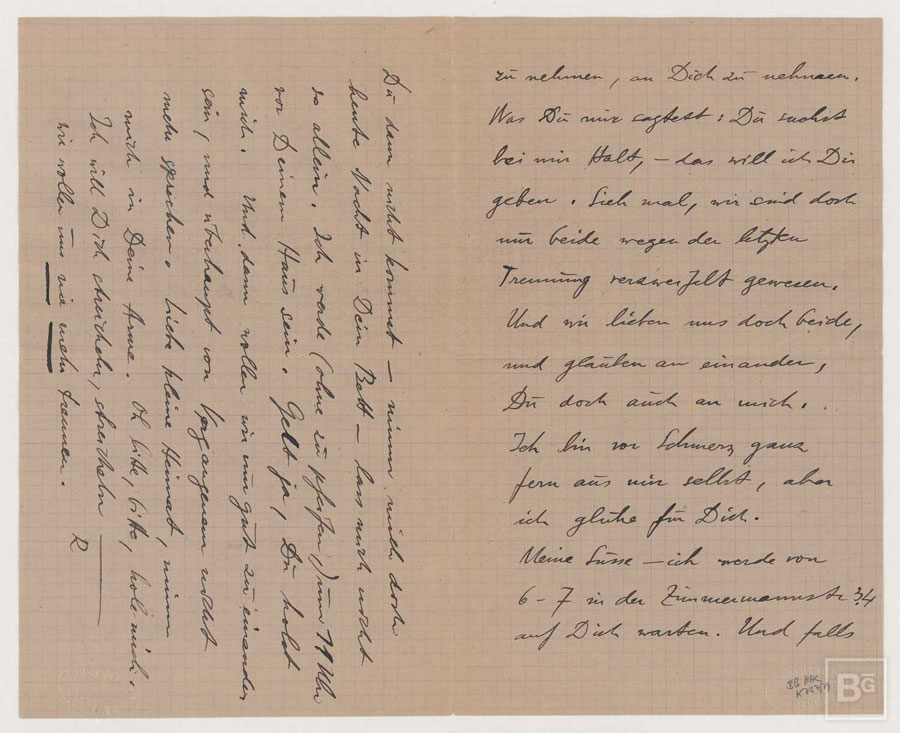 zu nehmen, an Dich zu nehmen.
Was Du mir sagtest: Du suchst
bei mir Halt, – das will ich Dir
geben. Sieh mal, wir sind doch
nur beide wegen der letzten
Trennung verzweifelt gewesen.
Und wir lieben uns doch beide,
und glauben an einander,
Du doch auch an mich.
Ich bin vor Schmerz ganz
fern aus mir selbst, aber
ich glühe für Dich.
Meine Süsse – ich werde von
6 – 7 in der Zimmermannstr 34
auf Dich warten. Und falls
Du dann nicht kommst – nimm mich doch
heute Nacht in Dein Bett – lass mich nicht
so allein. Ich werde (ohne zu pfeifen) um 11 Uhr
vor Deinem Haus sein. Gelt ja, Du holst
mich. Und dann wollen wir nur gut zu einander
sein, und überhaupt von Vergangenem nicht
mehr sprechen. Liebe kleine Heimat, nimm
mich in Deine Arme. Oh bitte, bitte, hol mich.
Ich will Dich streicheln, streicheln
wir wollen uns nie mehr trennen.
R
BG HHC
K 787/79
BG